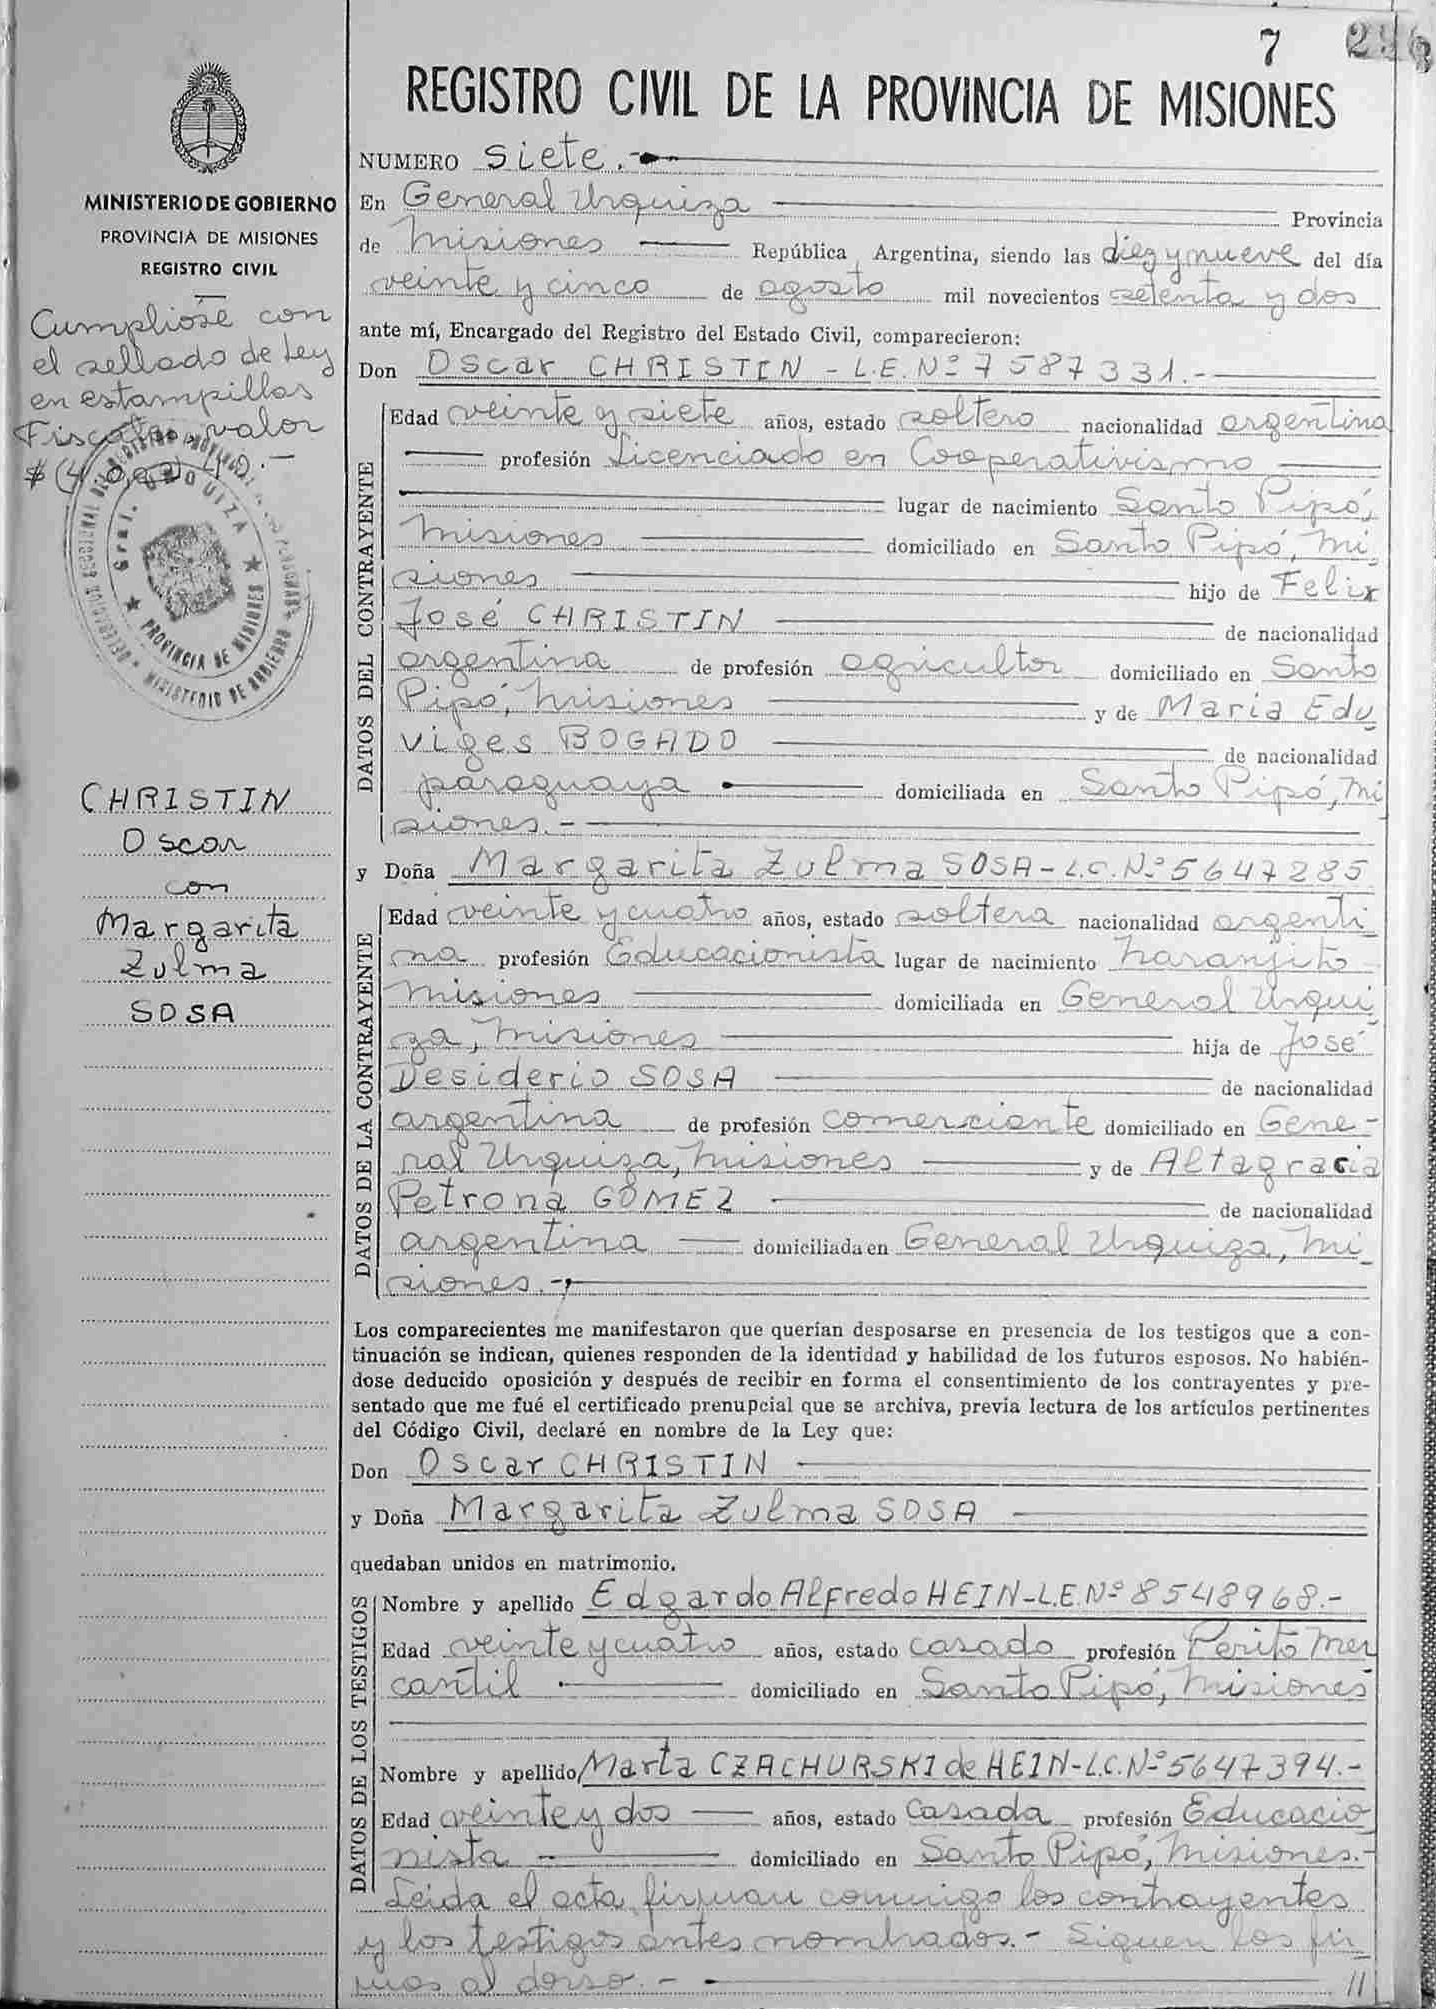 7
REGISTRO CIVIL DE LA PROVINCIA DE MISIONES
MINISTERIO DE GOBIERNO
PROVINCIA DE MISIONES
REGISTRO CIVIL
Cumplióse con
el sellado de Ley
en estampillas
Fiscales, valor
CHRISTIN
Oscar
con
Margarita
Zulma
SOSA
NUMERO Siete.-
En General Urquiza Provincia
de Misiones República Argentina, siendo las diez y nueve del día
veinte y cinco de agosto mil novecientos setenta y dos
ante mí, Encargado del Registro del Estado Civil, comparecieron:
Don Oscar CHRISTIN - L.E. Nº 7587331.-
DATOS DEL CONTRAYENTE
Edad veinte y siete años, estado soltero nacionalidad argentina
profesión Licenciado en Cooperativismo
lugar de nacimiento Santo Pipó,
Misiones domiciliado en Santo Pipó, Mi
siones hijo de Felix
José CHRISTIN de nacionalidad
argentina de profesión agricultor domiciliado en Santo
Pipó, Misiones y de Maria Edu
viges BOGADO de nacionalidad
paraguaya domiciliada en Santo Pipó, Mi
siones.-
y Doña Margarita Zulma SOSA - L.C. Nº 5647285
DATOS DE LA CONTRAYENTE
Edad veinte y cuatro años, estado soltera nacionalidad argenti
na profesión Educacionista lugar de nacimiento Naranjito
Misiones domiciliada en General Urqui
za, Misiones hija de José
Desiderio SOSA de nacionalidad
argentina de profesión comerciante domiciliado en Gene-
ral Urquiza, Misiones y de Altagracia
Petrona GOMEZ de nacionalidad
argentina domiciliada en General Urquiza, Mi
siones.-
Los comparecientes me manifestaron que querían desposarse en presencia de los testigos que a con-
tinuación se indican, quienes responden de la identidad y habilidad de los futuros esposos. No habién-
dose deducido oposición y después de recibir en forma el consentimiento de los contrayentes y pre-
sentado que me fué el certificado prenupcial que se archiva, previa lectura de los artículos pertinentes
del Código Civil, declaré en nombre de la Ley que:
Don Oscar CHRISTIN
y Doña Margarita Zulma SOSA
quedaban unidos en matrimonio.
DATOS DE LOS TESTIGOS
Nombre y apellido Edgardo Alfredo HEIN - L.E. Nº 8548968.-
Edad veinte y cuatro años, estado casado profesión Perito Mer
cantil domiciliado en Santo Pipó, Misiones
Nombre y apellido Marta CZACHURSKI de HEIN - L.C. Nº 5647394.-
Edad veinte y dos años, estado casada profesión Educacio
nista domiciliado en Santo Pipó, Misiones.-
Leida el acta, firman conmigo los contrayentes
y los testigos antes nombrados.- Siguen las fir
mas al dorso.- //